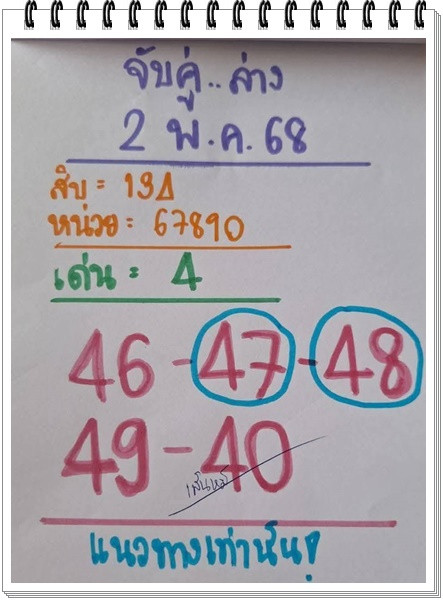 จับคู่..ล่าง
2 พ.ค.68
สิบ = 134
หน่วย = 67890
เด่น = 4
46-47-48
49-40
แนวทางเท่านั้น